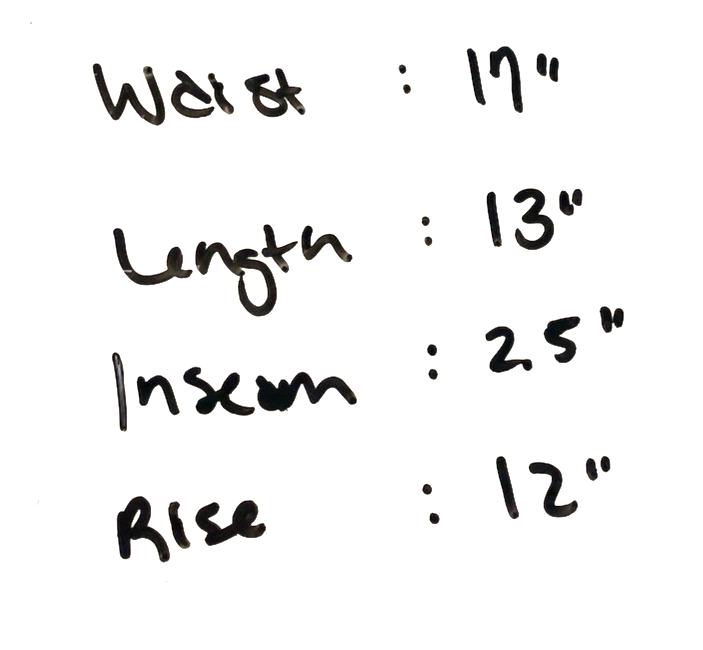 Waist : 17"
Length : 13"
Inseam : 25"
Rise : 12"